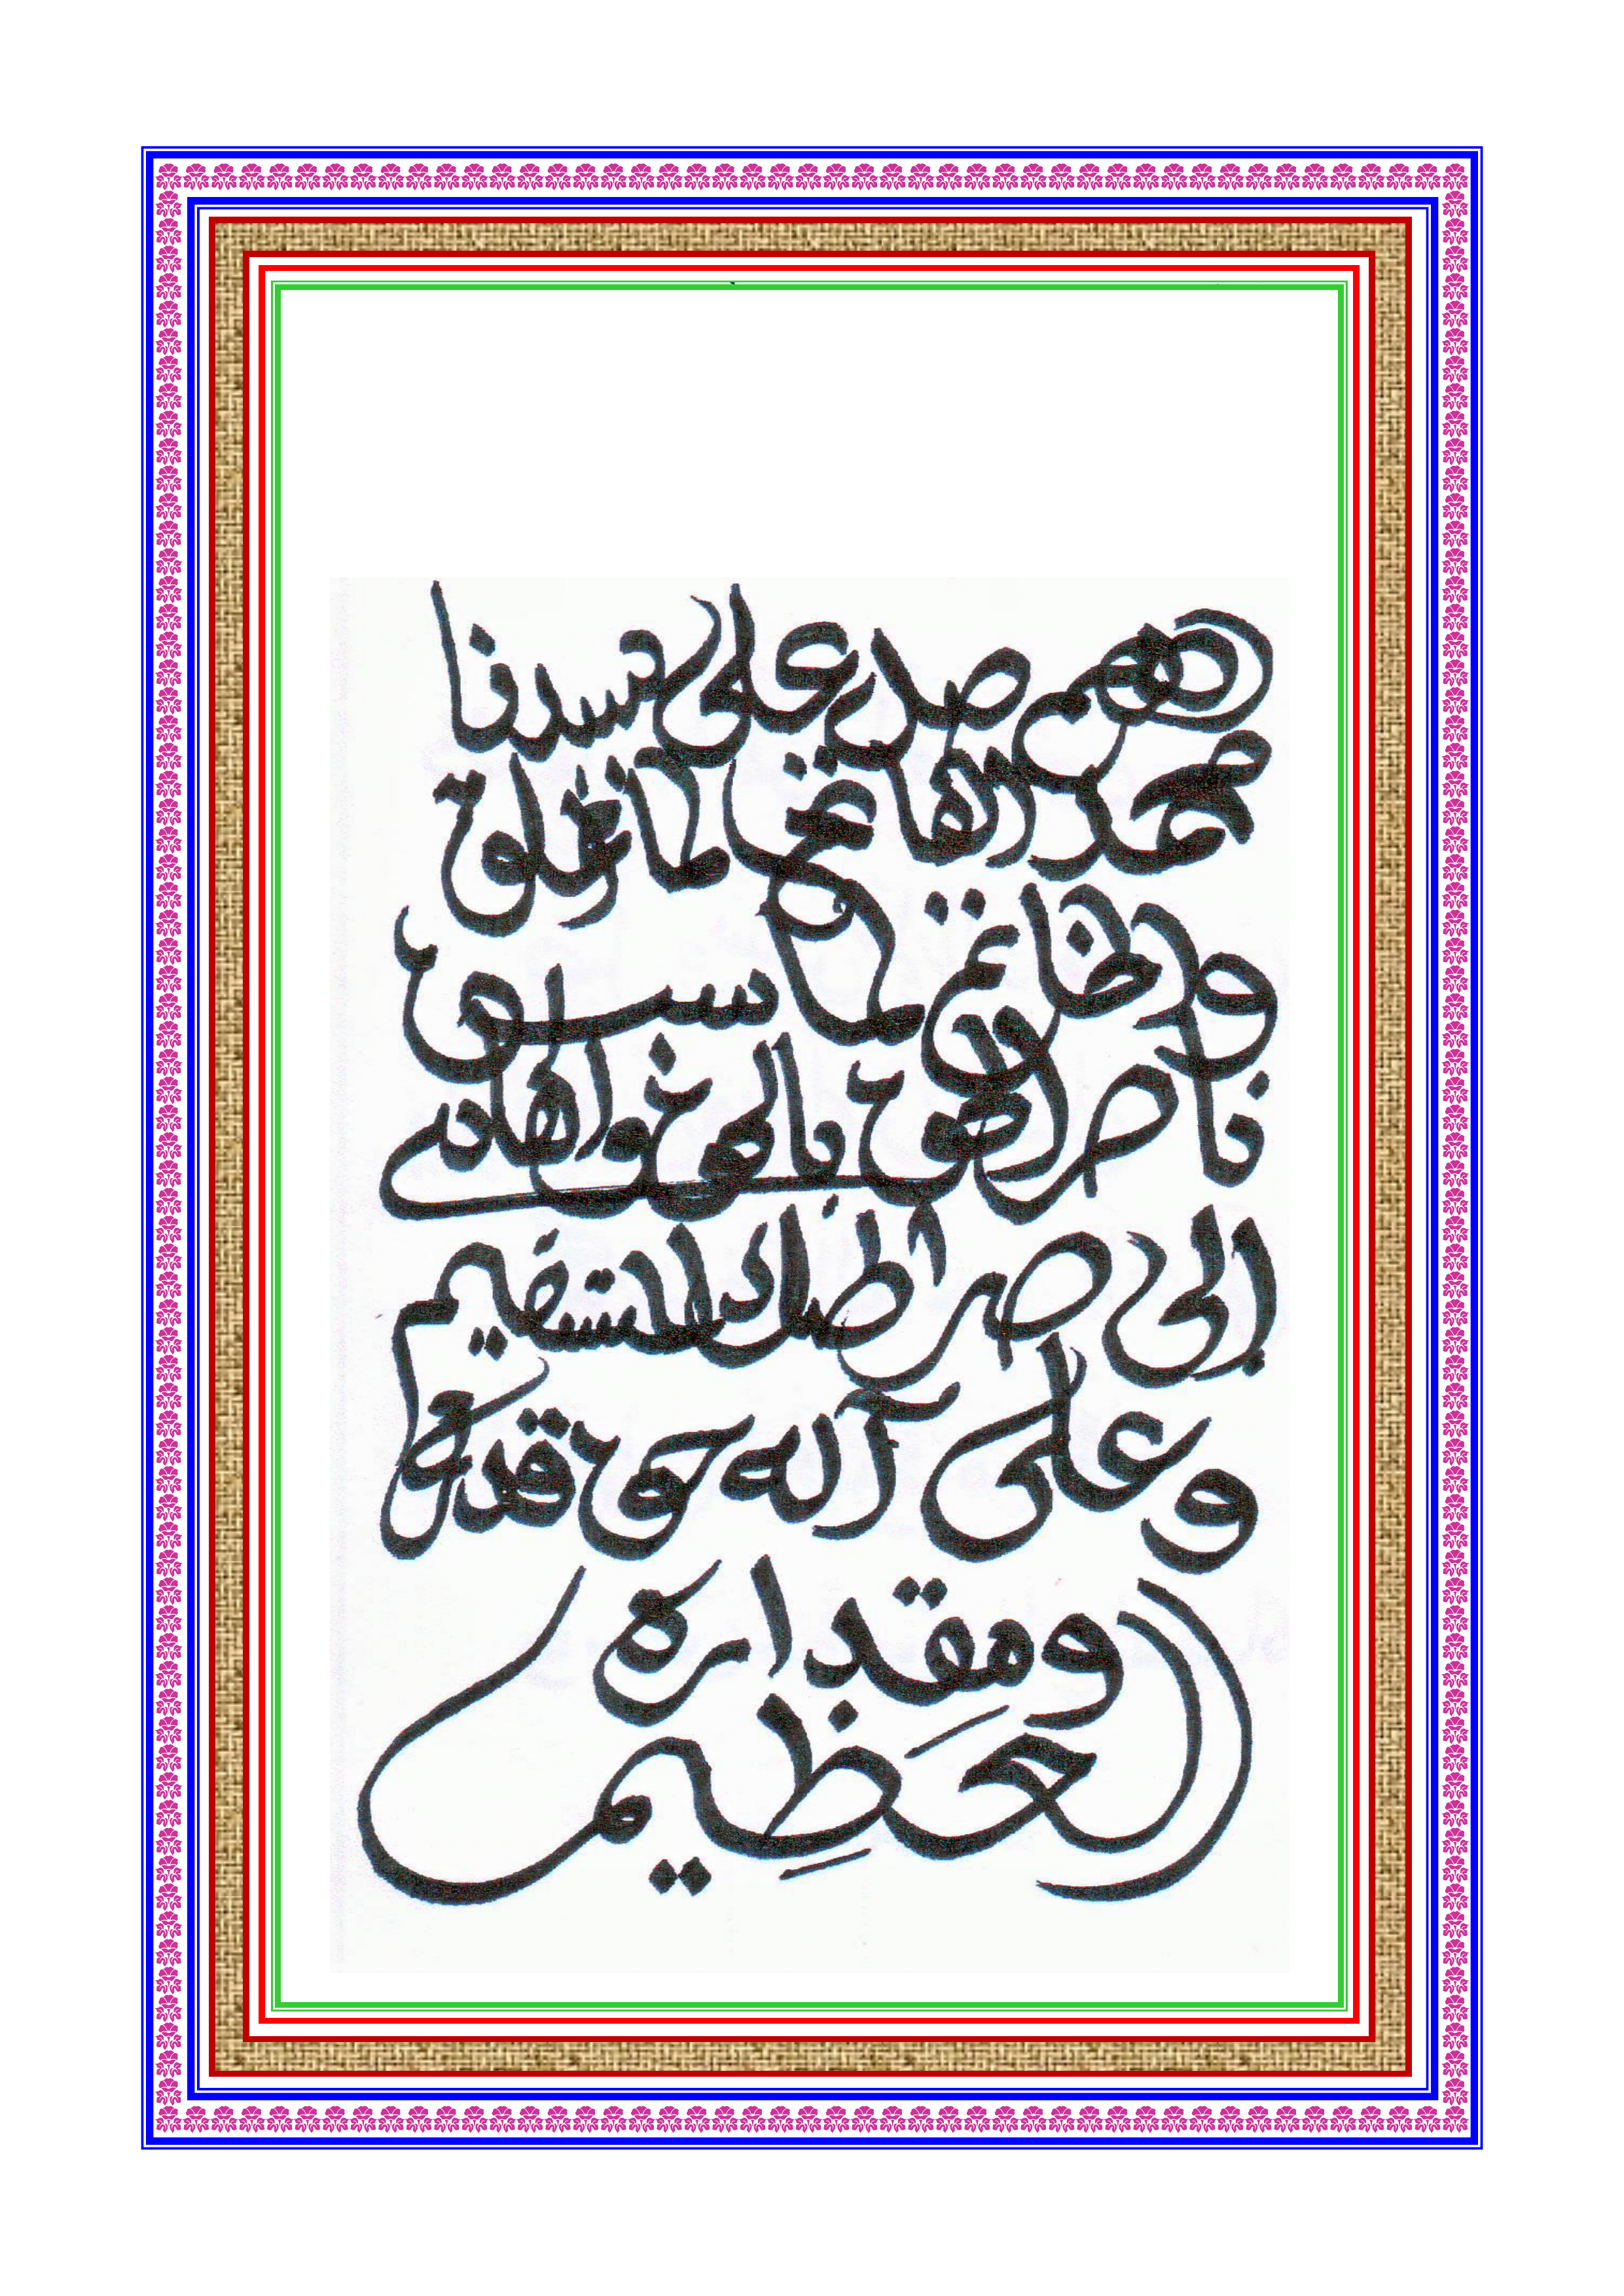 اللهم صل على سيدنا
محمد الفاتح لما أغلق
والخاتم لما سبق
ناصر الحق بالحق والهادي
إلى صراطك المستقيم
وعلى آله حق قدره
ومقداره
العظيم